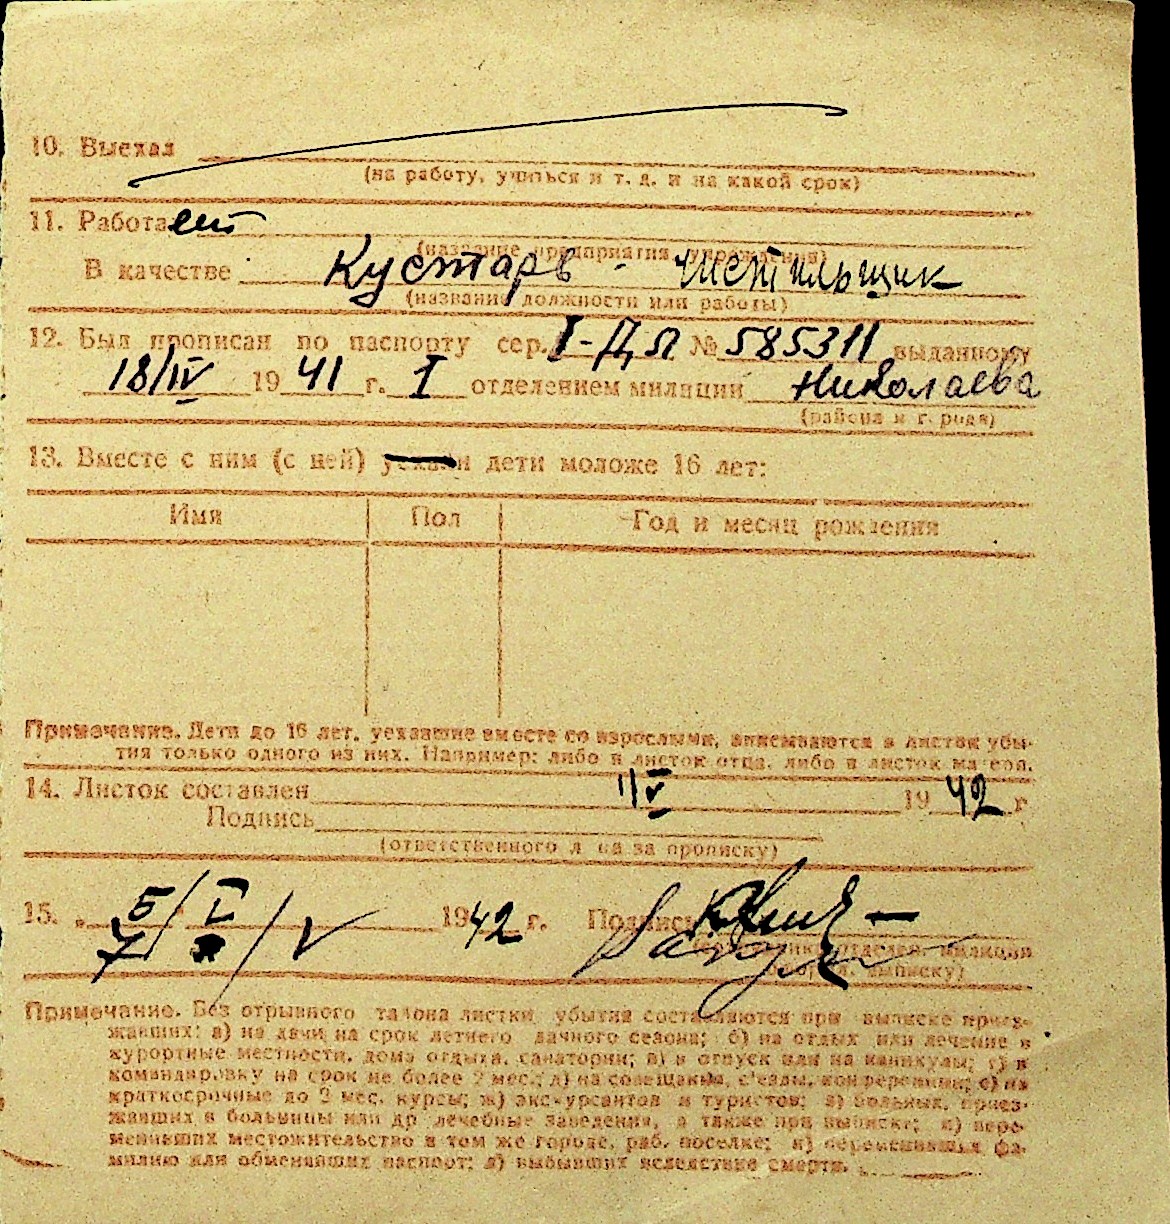 10. Выехал
(на работу, учиться и т. д. и на какой срок)
11. Работает
(название предприятия, учреждения)
В качестве Кустарь -
(название должности или работы)
12. Был прописан по паспорту сер. I-ДЛ № 585311 выданному
18/IV 1941 г. I отделением милиции Николаева
(района и города)
13. Вместе с ним (с ней) уехали дети моложе 16 лет:
Имя Пол Год и месяц рождения
Примечание. Дети до 16 лет, уехавшие вместе со взрослыми, вписываются в листок убы-
тия только одного из них. Например: либо в листок отца, либо в листок матери.
14. Листок составлен 1942 г
Подпись
(ответственного лица за прописку)
15. „ 5/ V 1942 г. Подпись
7/ / V
милиции
выписку)
Примечание. Без отрывного талона листки убытия составляются при выписке приез-
жавших: а) на дачи на срок летнего дачного сезона; б) на отдых или лечение в
курортные местности, дома отдыха, санатории; в) в отпуск или на каникулы; г) в
командировку на срок не более 2 мес.; д) на совещания, съезды, конференции; е) на
краткосрочные до 2 мес. курсы; ж) экскурсантов и туристов; з) больных, приез-
жавших в больницы или др лечебные заведения, а также при выписке; и) пере-
менивших местожительство в том же городе, раб. поселке; к) переменивших фа-
милию или обменявших паспорт; л) выбывших вследствие смерти.